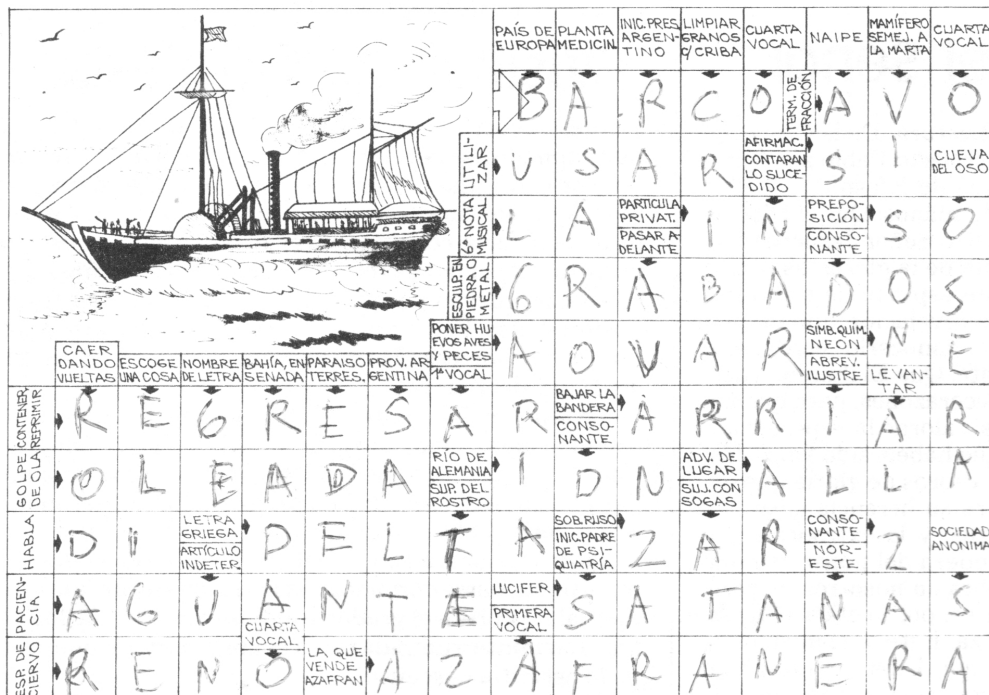 PAÍS DE EUROPA
PLANTA MEDICIN.
INIC. PRES. ARGEN-
TINO
LIMPIAR GRANOS C/ CRIBA
CUARTA VOCAL
NAIPE
MAMÍFERO SEMEJ. A LA MARTA
CUARTA VOCAL
B A R C O
TERM. DE FRACCIÓN
A V O
UTILI-
ZAR
U S A R
AFIRMAC.
CONTARAN LO SUCE-
DIDO
S I
CUEVA DEL OSO
6ª NOTA MUSICAL
L A
PARTICULA PRIVAT.
PASAR A-
DELANTE
I N
PREPO-
SICIÓN
CONSO-
NANTE
S O
ESCULP. EN PIEDRA O METAL
G R A B A D O S
PONER HU-
EVOS AVES Y PECES
1ª VOCAL
A O V A R
SÍMB. QUÍM. NEÓN
ABREV. ILUSTRE
N E
CAER DANDO VUELTAS
ESCOGE UNA COSA
NOMBRE DE LETRA
BAHÍA, EN-
SENADA
PARAISO TERRES.
PROV. AR-
GENTINA
LEVAN-
TAR
CONTENER, REPRIMIR
R E G R E S A R
BAJAR LA BANDERA
CONSO-
NANTE
A R R I A R
GOLPE DE OLA
O L E A D A
RÍO DE ALEMANIA
SUP. DEL ROSTRO
I D N
ADV. DE LUGAR
SUJ. CON SOGAS
A L L A
HABLA
D I
LETRA GRIEGA
ARTÍCULO INDETER.
D E L T A
SOB. RUSO
INIC. PADRE DE PSI-
QUIATRÍA
Z A R
CONSO-
NANTE
NOR-
ESTE
Z
SOCIEDAD ANONIMA
PACIEN-
CIA
A G U A N T E
CUARTA VOCAL
LUCIFER
PRIMERA VOCAL
S A T A N A S
ESP. DE CIERVO
R E N O
LA QUE VENDE AZAFRAN
A Z A F R A N E R A